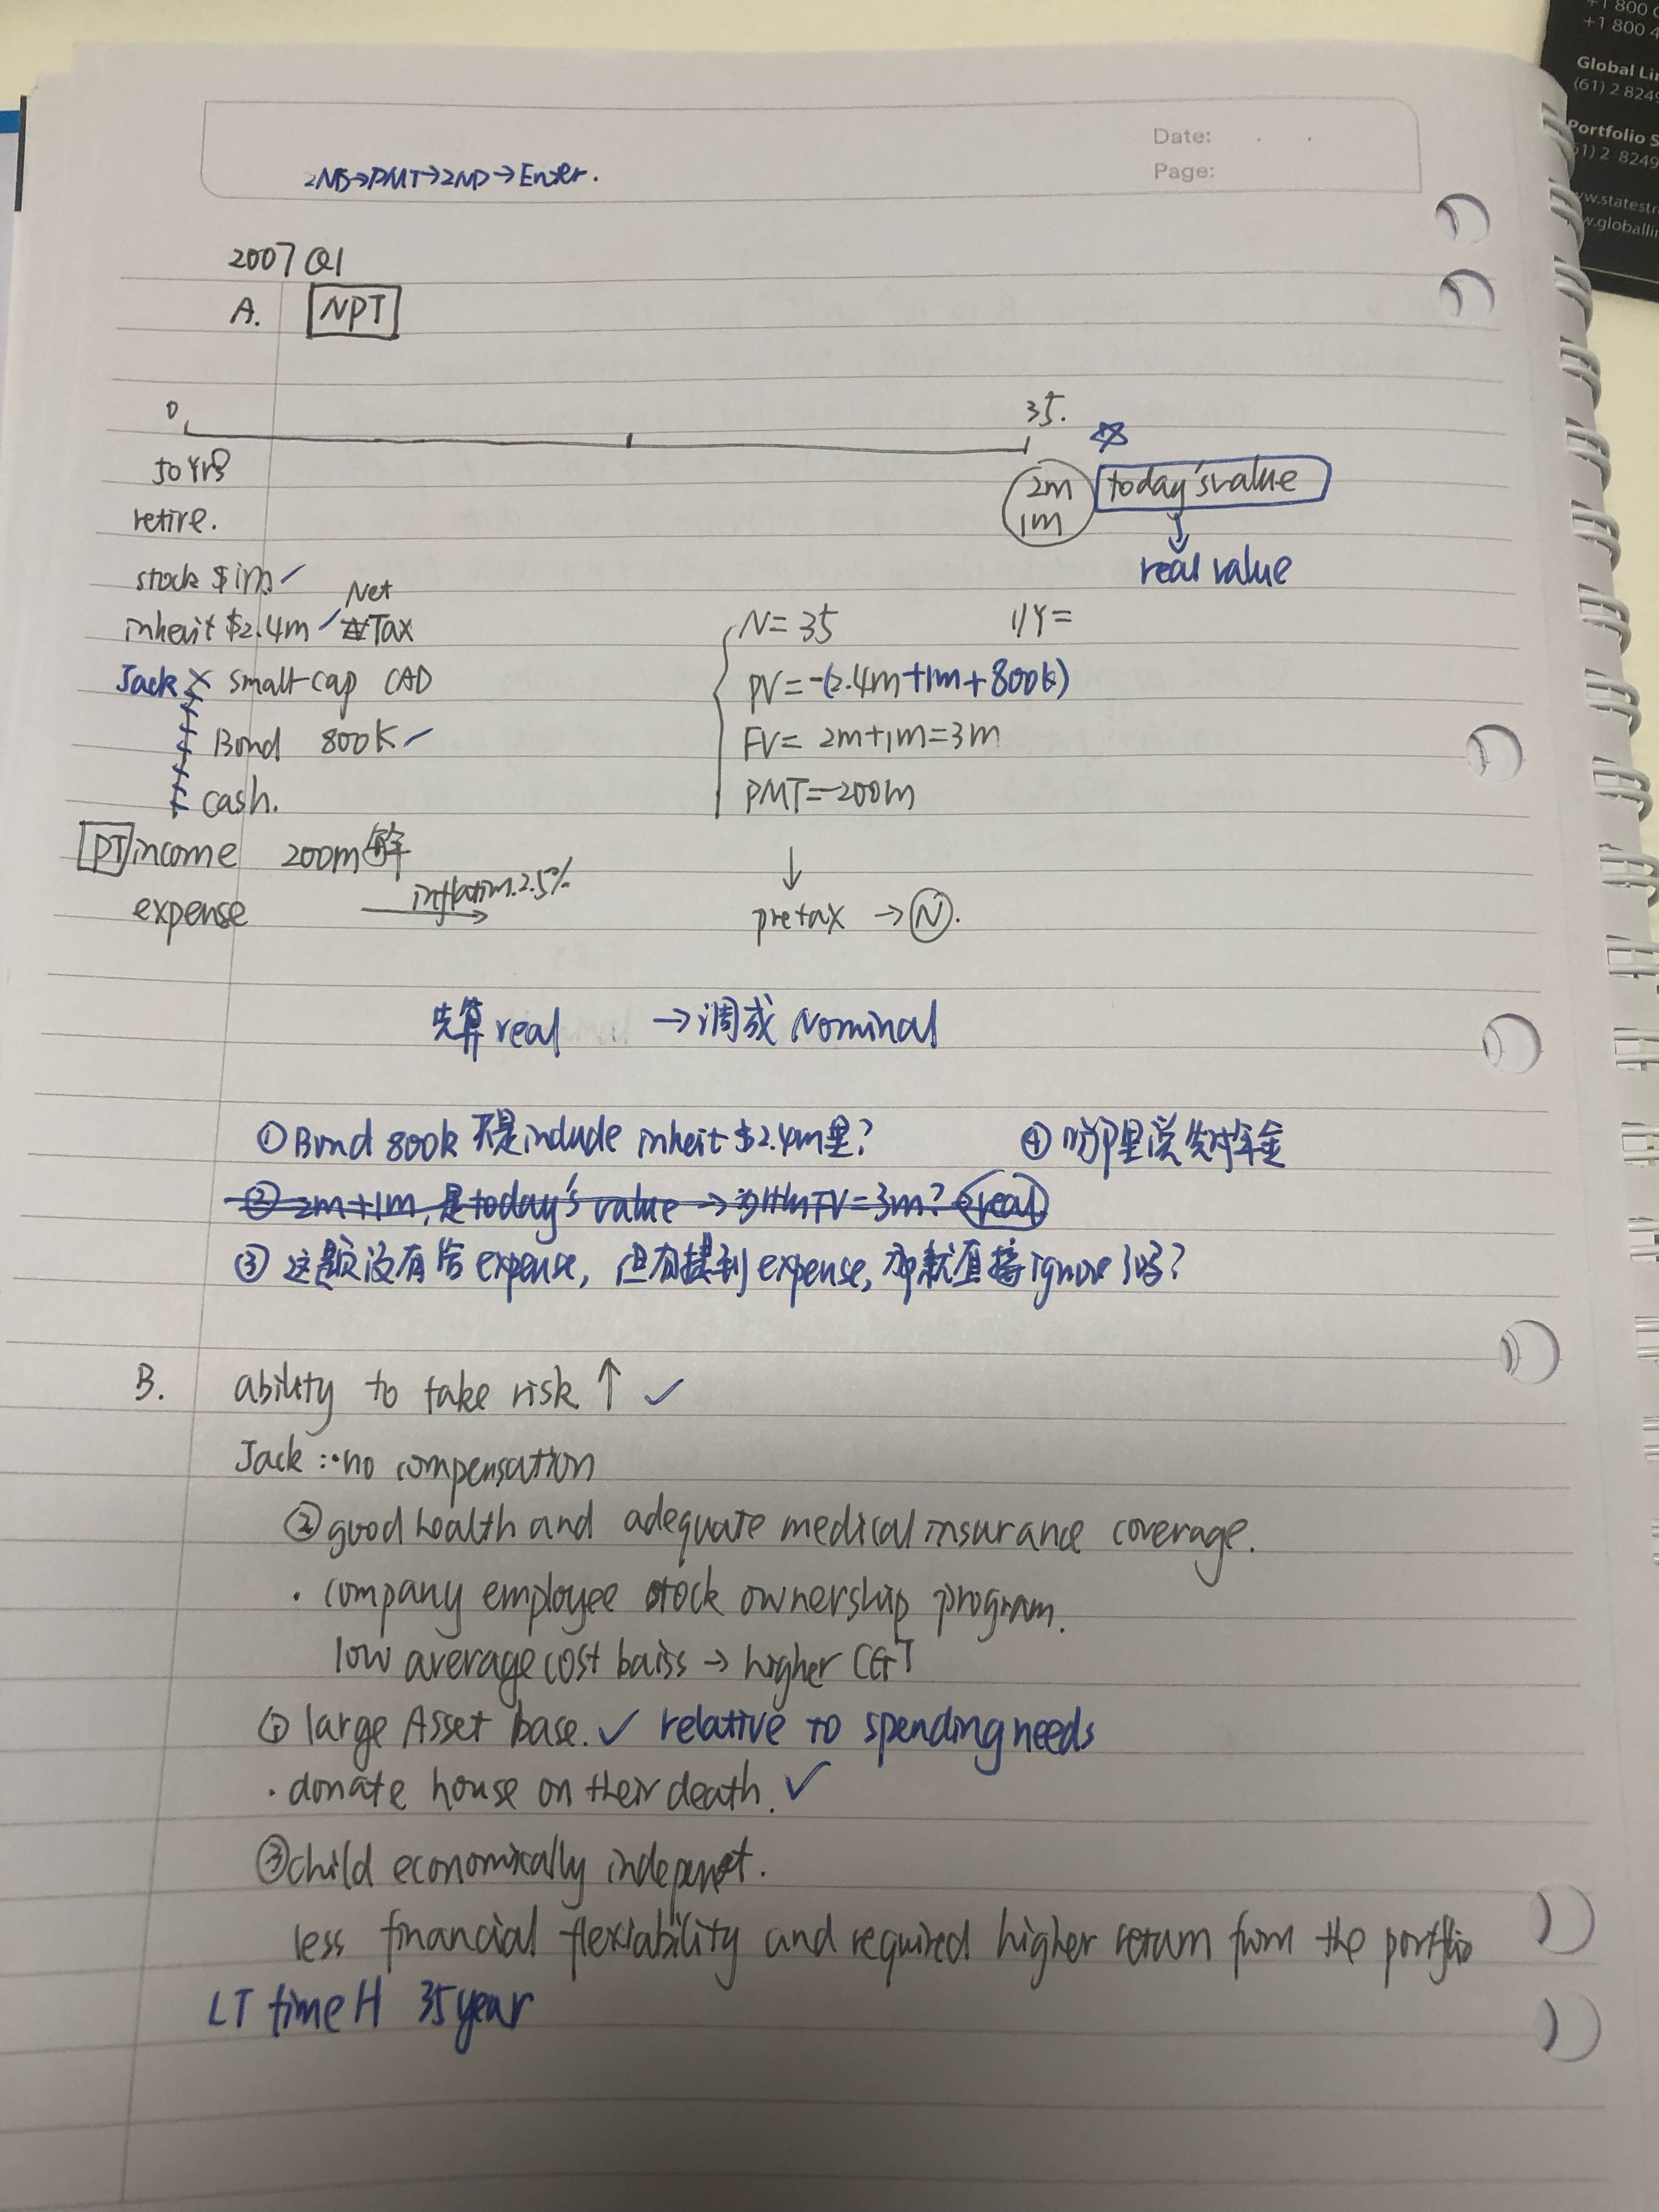 +1 800
+1 800 4
Global Li
(61) 2 8249
Portfolio S
61) 2 8249
w.statestr
w.globallin
Date: . .
Page:
2ND→PMT→2ND→Enter.
2007 Q1
A. NPT
0 35.
50 yrs
retire.
2m today's value
1m
real value
stock $1m ✓
Net
inherit $2.4m ✓ Tax
Jack × small-cap CAD
Bond 800K ✓
cash.
PT income 200m
expense inflatim.2.5%
N=35 I/Y=
PV=-(2.4m+1m+800k)
FV= 2m+1m=3m
PMT=-200m
↓
pretax → N.
先算real → 调成 Nominal
① Bond 800k 不是include inheit $2.4m里?
④ 哪里说先付年金
② 2m+1m,是today's value → FV=3m? real
③ 这题没有给 expense, 但有提到 expense, 那就直接ignore了吗?
B. ability to take risk ↑ ✓
Jack : · no compensation
② good health and adequate medical insurance coverage.
· company employee stock ownership program.
low average cost baiss → higher CGT
① large Asset base. ✓ relative to spending needs
· donate house on their death. ✓
③ child economically
less financial flexiability and required higher return from the portflio
LT time H 35year